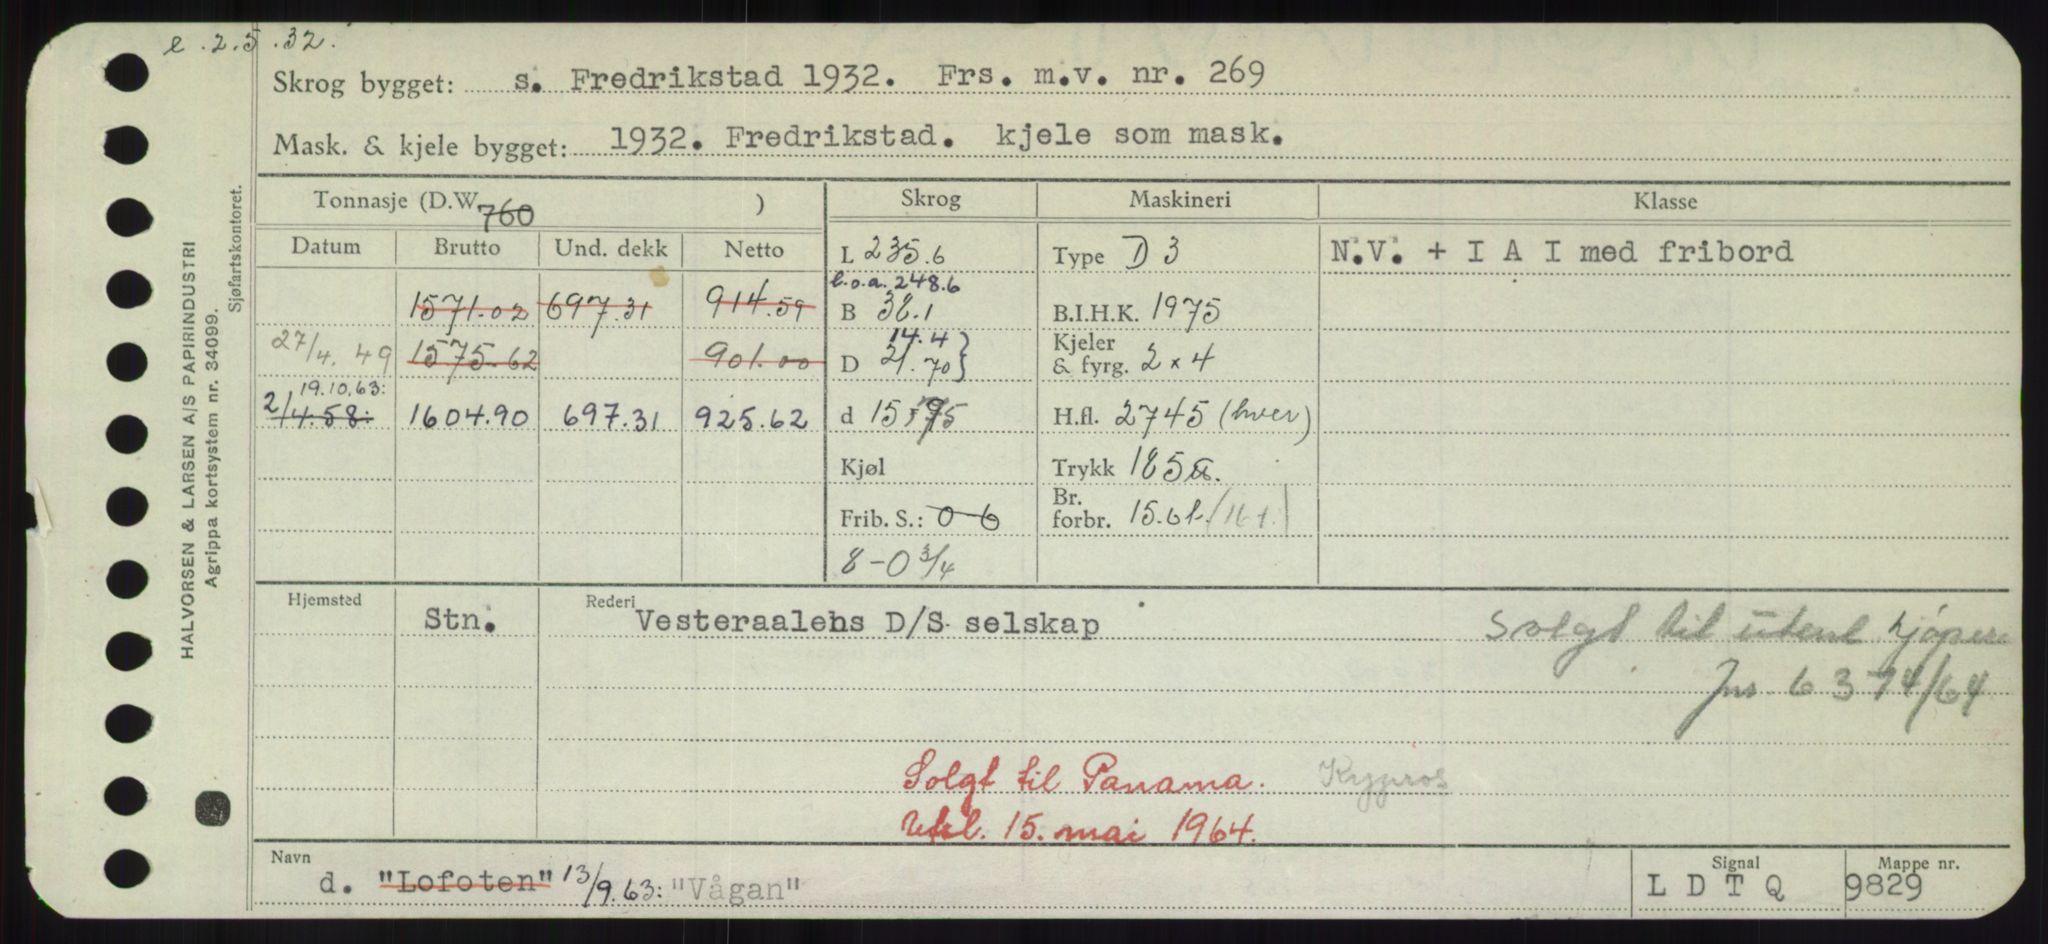 e. 2.5.32.
Skrog bygget: s. Fredrikstad 1932. Frs. m.v. nr. 269
Mask. & kjele bygget: 1932. Fredrikstad. kjele som mask.
Tonnasje (D.W. 760 )
Skrog
Maskineri
Klasse
Datum Brutto Und. dekk Netto
L 235.6
l.o.a. 248.6
Type D 3
N.V. + I A I med fribord
1571.02 697.31 914.59
B 38.1
B.I.H.K. 1975
27/4. 49 1575.62 901.00
14.4
D 21.70
Kjeler
& fyrg. 2 x 4
19.10.63:
2/4.58: 1604.90 697.31 925.62
d 15
H.fl. 2745 (hver)
Kjøl
Trykk 185
Frib. S.: 0 6
Br.
forbr. 15.6t. (16 t.)
8-0 3/4
Hjemsted
Stn.
Rederi
Vesteraalens D/S selskap
Solgt til utenl. kjøpere
Jnr. 6374/64
Solgt til Panama. Kypros
Utsl. 15. mai 1964.
Navn
d. "Lofoten" 13/9.63: "Vågan"
Signal
L D T Q
Mappe nr.
9829
HALVORSEN & LARSEN A/S PAPIRINDUSTRI
Agrippa kortsystem nr. 34099.
Sjøfartskontoret.